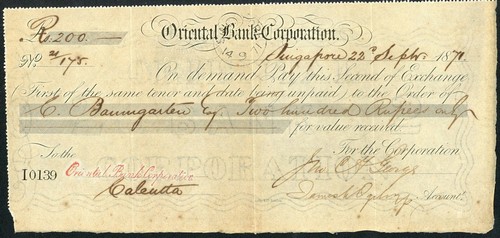 Rs 200. Oriental Bank Corporation.
No. 21/178. Singapore 22d Septr. 1871.
On demand Pay this Second of Exchange
First of the same tenor and date being unpaid to the Order of
E. Baumgarten Esq Two hundred Rupees only
for value received.
To the For the Corporation
I 0139 Oriental Bank Corporation
Calcutta
Accountt.